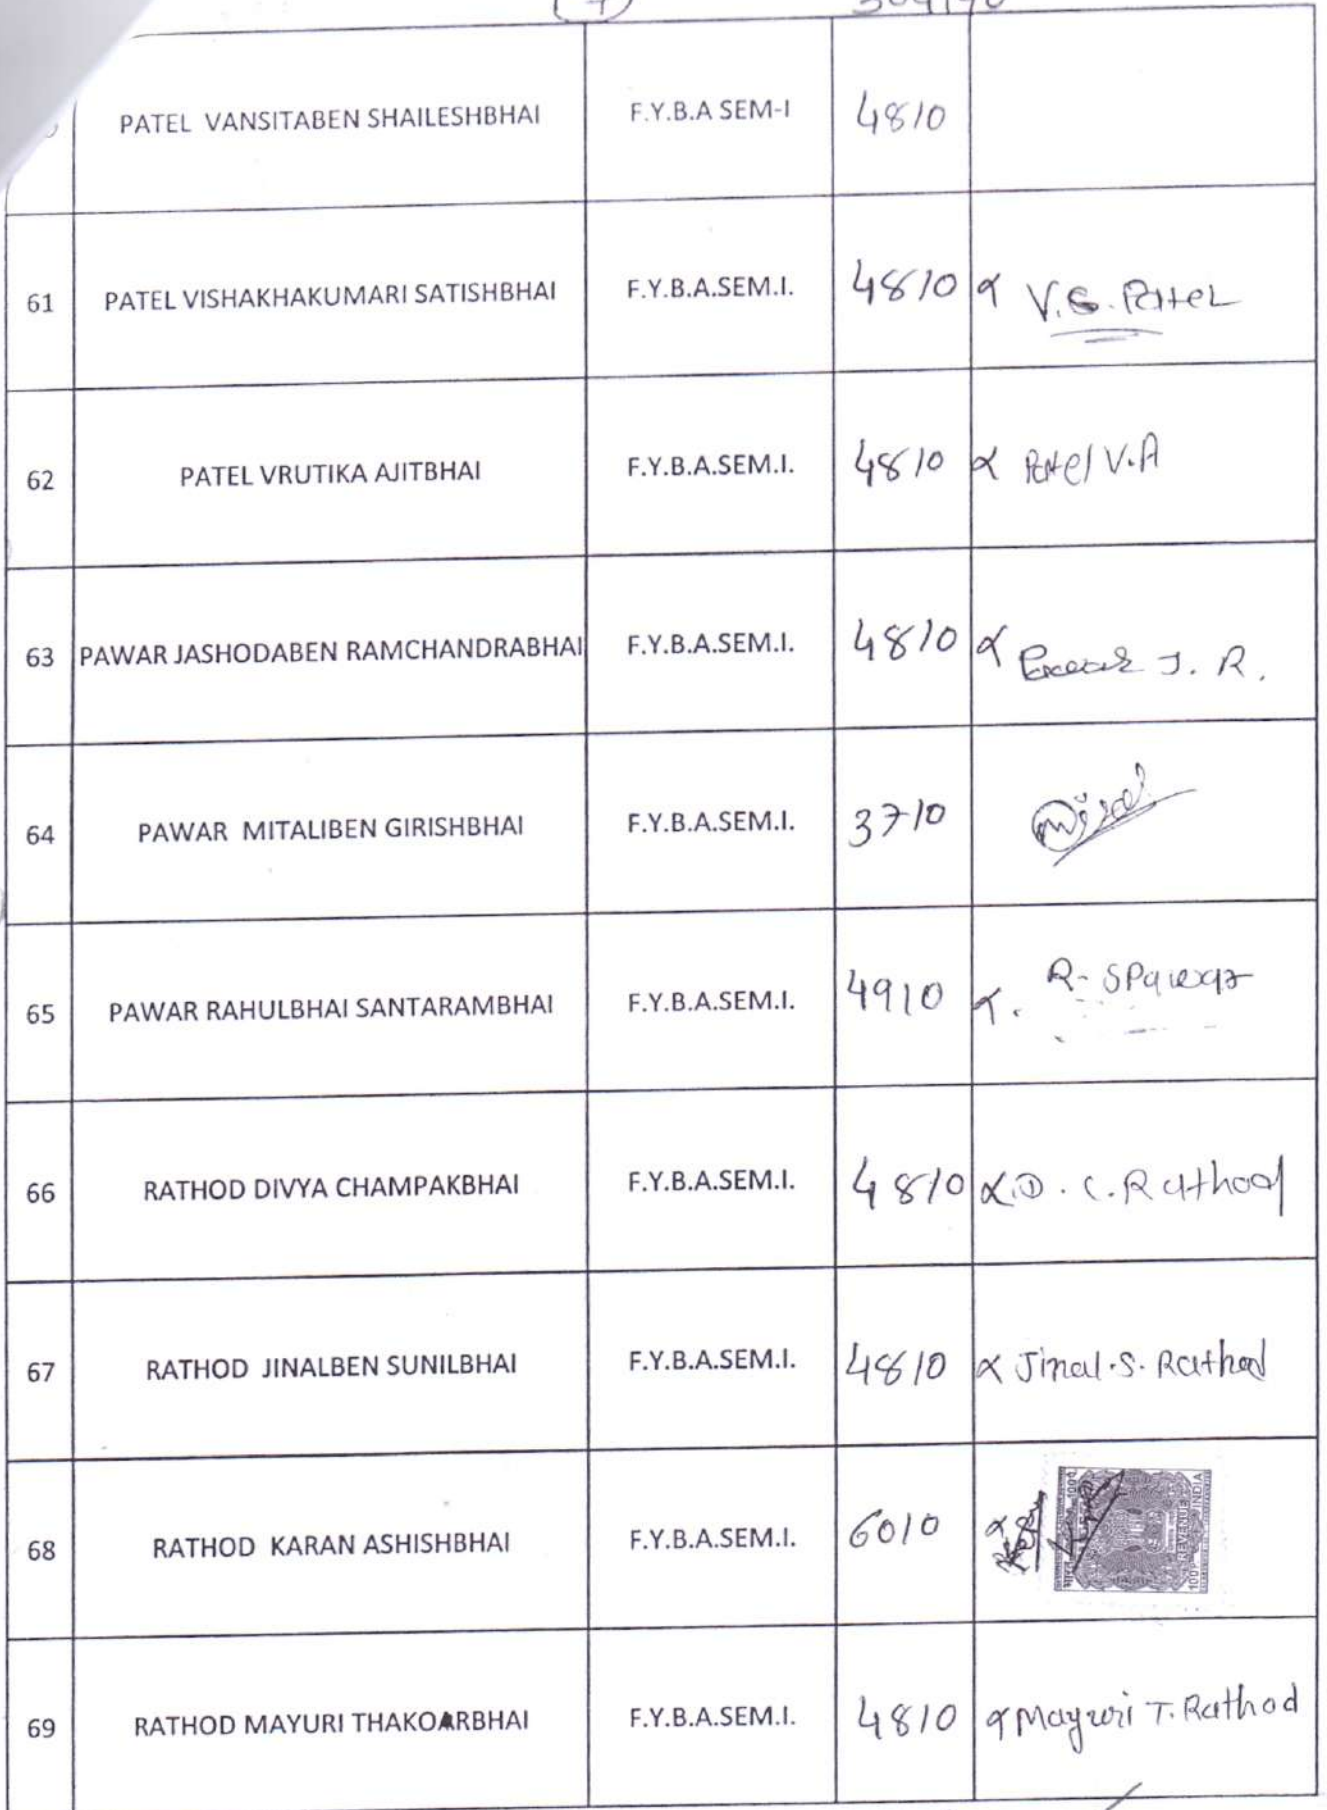 7
PATEL VANSITABEN SHAILESHBHAI F.Y.B.A SEM-I 4810
61 PATEL VISHAKHAKUMARI SATISHBHAI F.Y.B.A.SEM.I. 4810 V.S. Patel
62 PATEL VRUTIKA AJITBHAI F.Y.B.A.SEM.I. 4810 Patel V.A
63 PAWAR JASHODABEN RAMCHANDRABHAI F.Y.B.A.SEM.I. 4810 J. R.
64 PAWAR MITALIBEN GIRISHBHAI F.Y.B.A.SEM.I. 3710
65 PAWAR RAHULBHAI SANTARAMBHAI F.Y.B.A.SEM.I. 4910 R. S Pawar
66 RATHOD DIVYA CHAMPAKBHAI F.Y.B.A.SEM.I. 4810 D. C. Rathod
67 RATHOD JINALBEN SUNILBHAI F.Y.B.A.SEM.I. 4810 Jinal.S. Rathod
68 RATHOD KARAN ASHISHBHAI F.Y.B.A.SEM.I. 6010 REVENUE INDIA
69 RATHOD MAYURI THAKOARBHAI F.Y.B.A.SEM.I. 4810 Mayuri T. Rathod